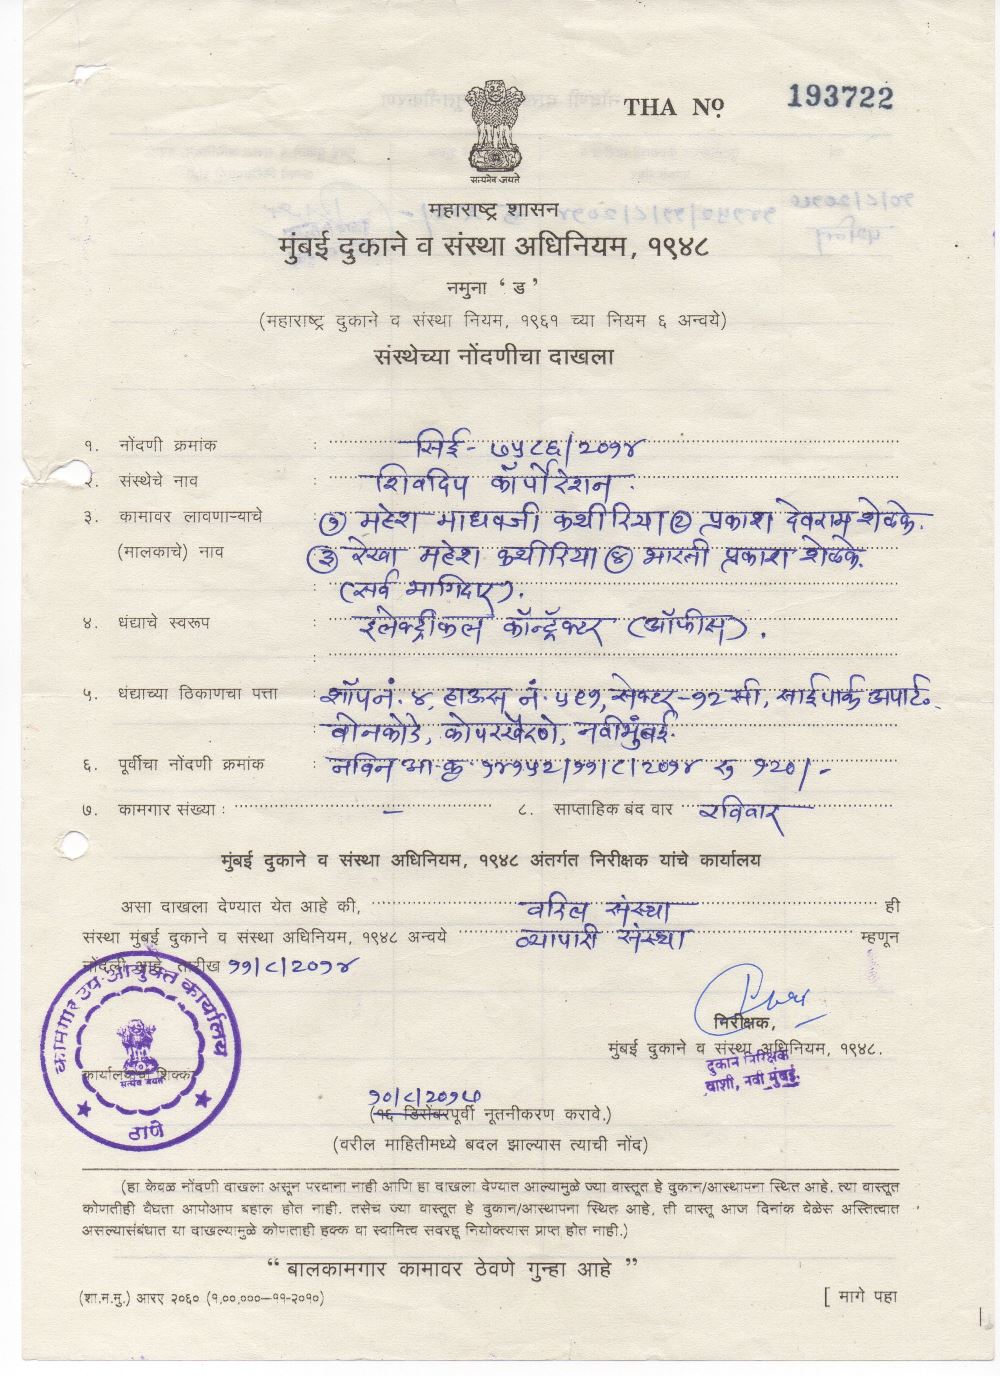 THA Nº 193722
सत्यमेव जयते
महाराष्ट्र शासन
मुंबई दुकाने व संस्था अधिनियम, १९४८
नमुना ‘ ड ’
(महाराष्ट्र दुकाने व संस्था नियम, १९६१ च्या नियम ६ अन्वये)
संस्थेच्या नोंदणीचा दाखला
१. नोंदणी क्रमांक : सिई - ७५८६/२०१४
२. संस्थेचे नाव : शिवदिप कॉर्पोरेशन.
३. कामावर लावणाऱ्याचे : (१) महेश माधवजी कथीरिया (२) प्रकाश देवराम शेळके.
(मालकाचे) नाव (३) रेखा महेश कथीरिया (४) भारती प्रकाश शेळके.
(सर्व भागिदार).
४. धंद्याचे स्वरूप : इलेक्ट्रीकल कॉन्ट्रॅक्टर (ऑफीस).
५. धंद्याच्या ठिकाणचा पत्ता : शॉप नं. ४, हाऊस नं. ५९१, सेक्टर-१२ सी, साईपार्क अपार्ट.
बोनकोडे, कोपरखैरणे, नवीमुंबई.
६. पूर्वीचा नोंदणी क्रमांक : नविन आ क्रं १४१५२/११/८/२०१४ रु १२०/-
७. कामगार संख्या : - ८. साप्ताहिक बंद वार रविवार
मुंबई दुकाने व संस्था अधिनियम, १९४८ अंतर्गत निरीक्षक यांचे कार्यालय
असा दाखला देण्यात येत आहे की, वरिल संस्था ही
संस्था मुंबई दुकाने व संस्था अधिनियम, १९४८ अन्वये व्यापारी संस्था म्हणून
नोंदली आहे. तारीख ११/८/२०१४
कामगार उप आयुक्त कार्यालय
ठाणे
सत्यमेव जयते
कार्यालयाचा शिक्का
निरीक्षक,
मुंबई दुकाने व संस्था अधिनियम, १९४८.
दुकान निरिक्षक
वाशी, नवी मुंबई.
१०/८/२०१७
(१६ डिसेंबरपूर्वी नूतनीकरण करावे.)
(वरील माहितीमध्ये बदल झाल्यास त्याची नोंद)
(हा केवळ नोंदणी दाखला असून परवाना नाही आणि हा दाखला देण्यात आल्यामुळे ज्या वास्तूत हे दुकान/आस्थापना स्थित आहे. त्या वास्तूत
कोणतीही वैधता आपोआप बहाल होत नाही. तसेच ज्या वास्तूत हे दुकान/आस्थापना स्थित आहे, ती वास्तू आज दिनांक वेळेस अस्तित्वात
असल्यासंबंधात या दाखल्यामुळे कोणताही हक्क वा स्वामित्व सवरहू नियोक्त्यास प्राप्त होत नाही.)
“ बालकामगार कामावर ठेवणे गुन्हा आहे ”
(शा.म.मु.) आरए २०६० (१,००,०००—११-२०१०) [ मागे पहा